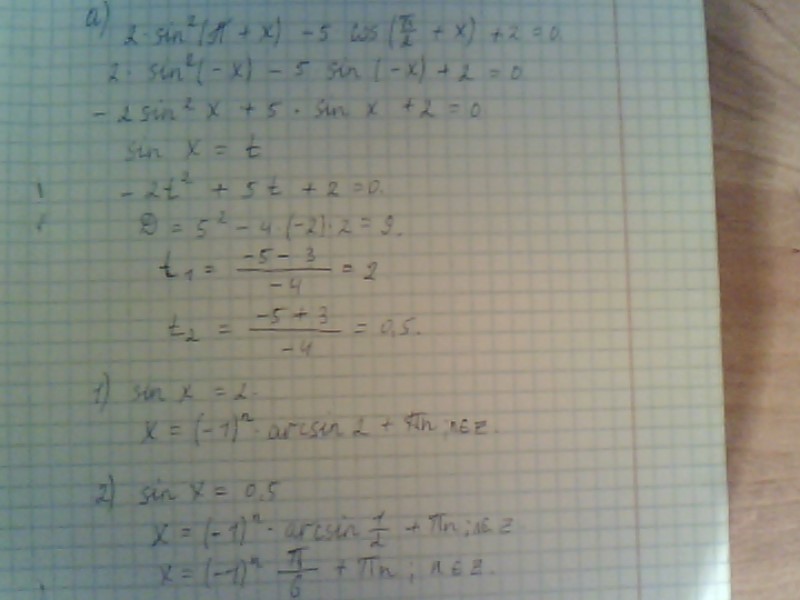 а) 2·sin²(π + x) - 5 cos(π/2 + x) + 2 = 0
2· sin²(-x) - 5 sin (-x) + 2 = 0
- 2 sin² x + 5 · sin x + 2 = 0
sin x = t
- 2t² + 5t + 2 = 0.
D = 5² - 4·(-2)·2 = 9.
t₁ = (-5 - 3)/(-4) = 2
t₂ = (-5 + 3)/(-4) = 0,5.
1) sin x = 2.
x = (-1)ⁿ · arcsin 2 + πn; n∈z.
2) sin x = 0,5
x = (-1)ⁿ · arcsin 1/2 + πn; n∈z
x = (-1)ⁿ π/6 + πn; n∈z.